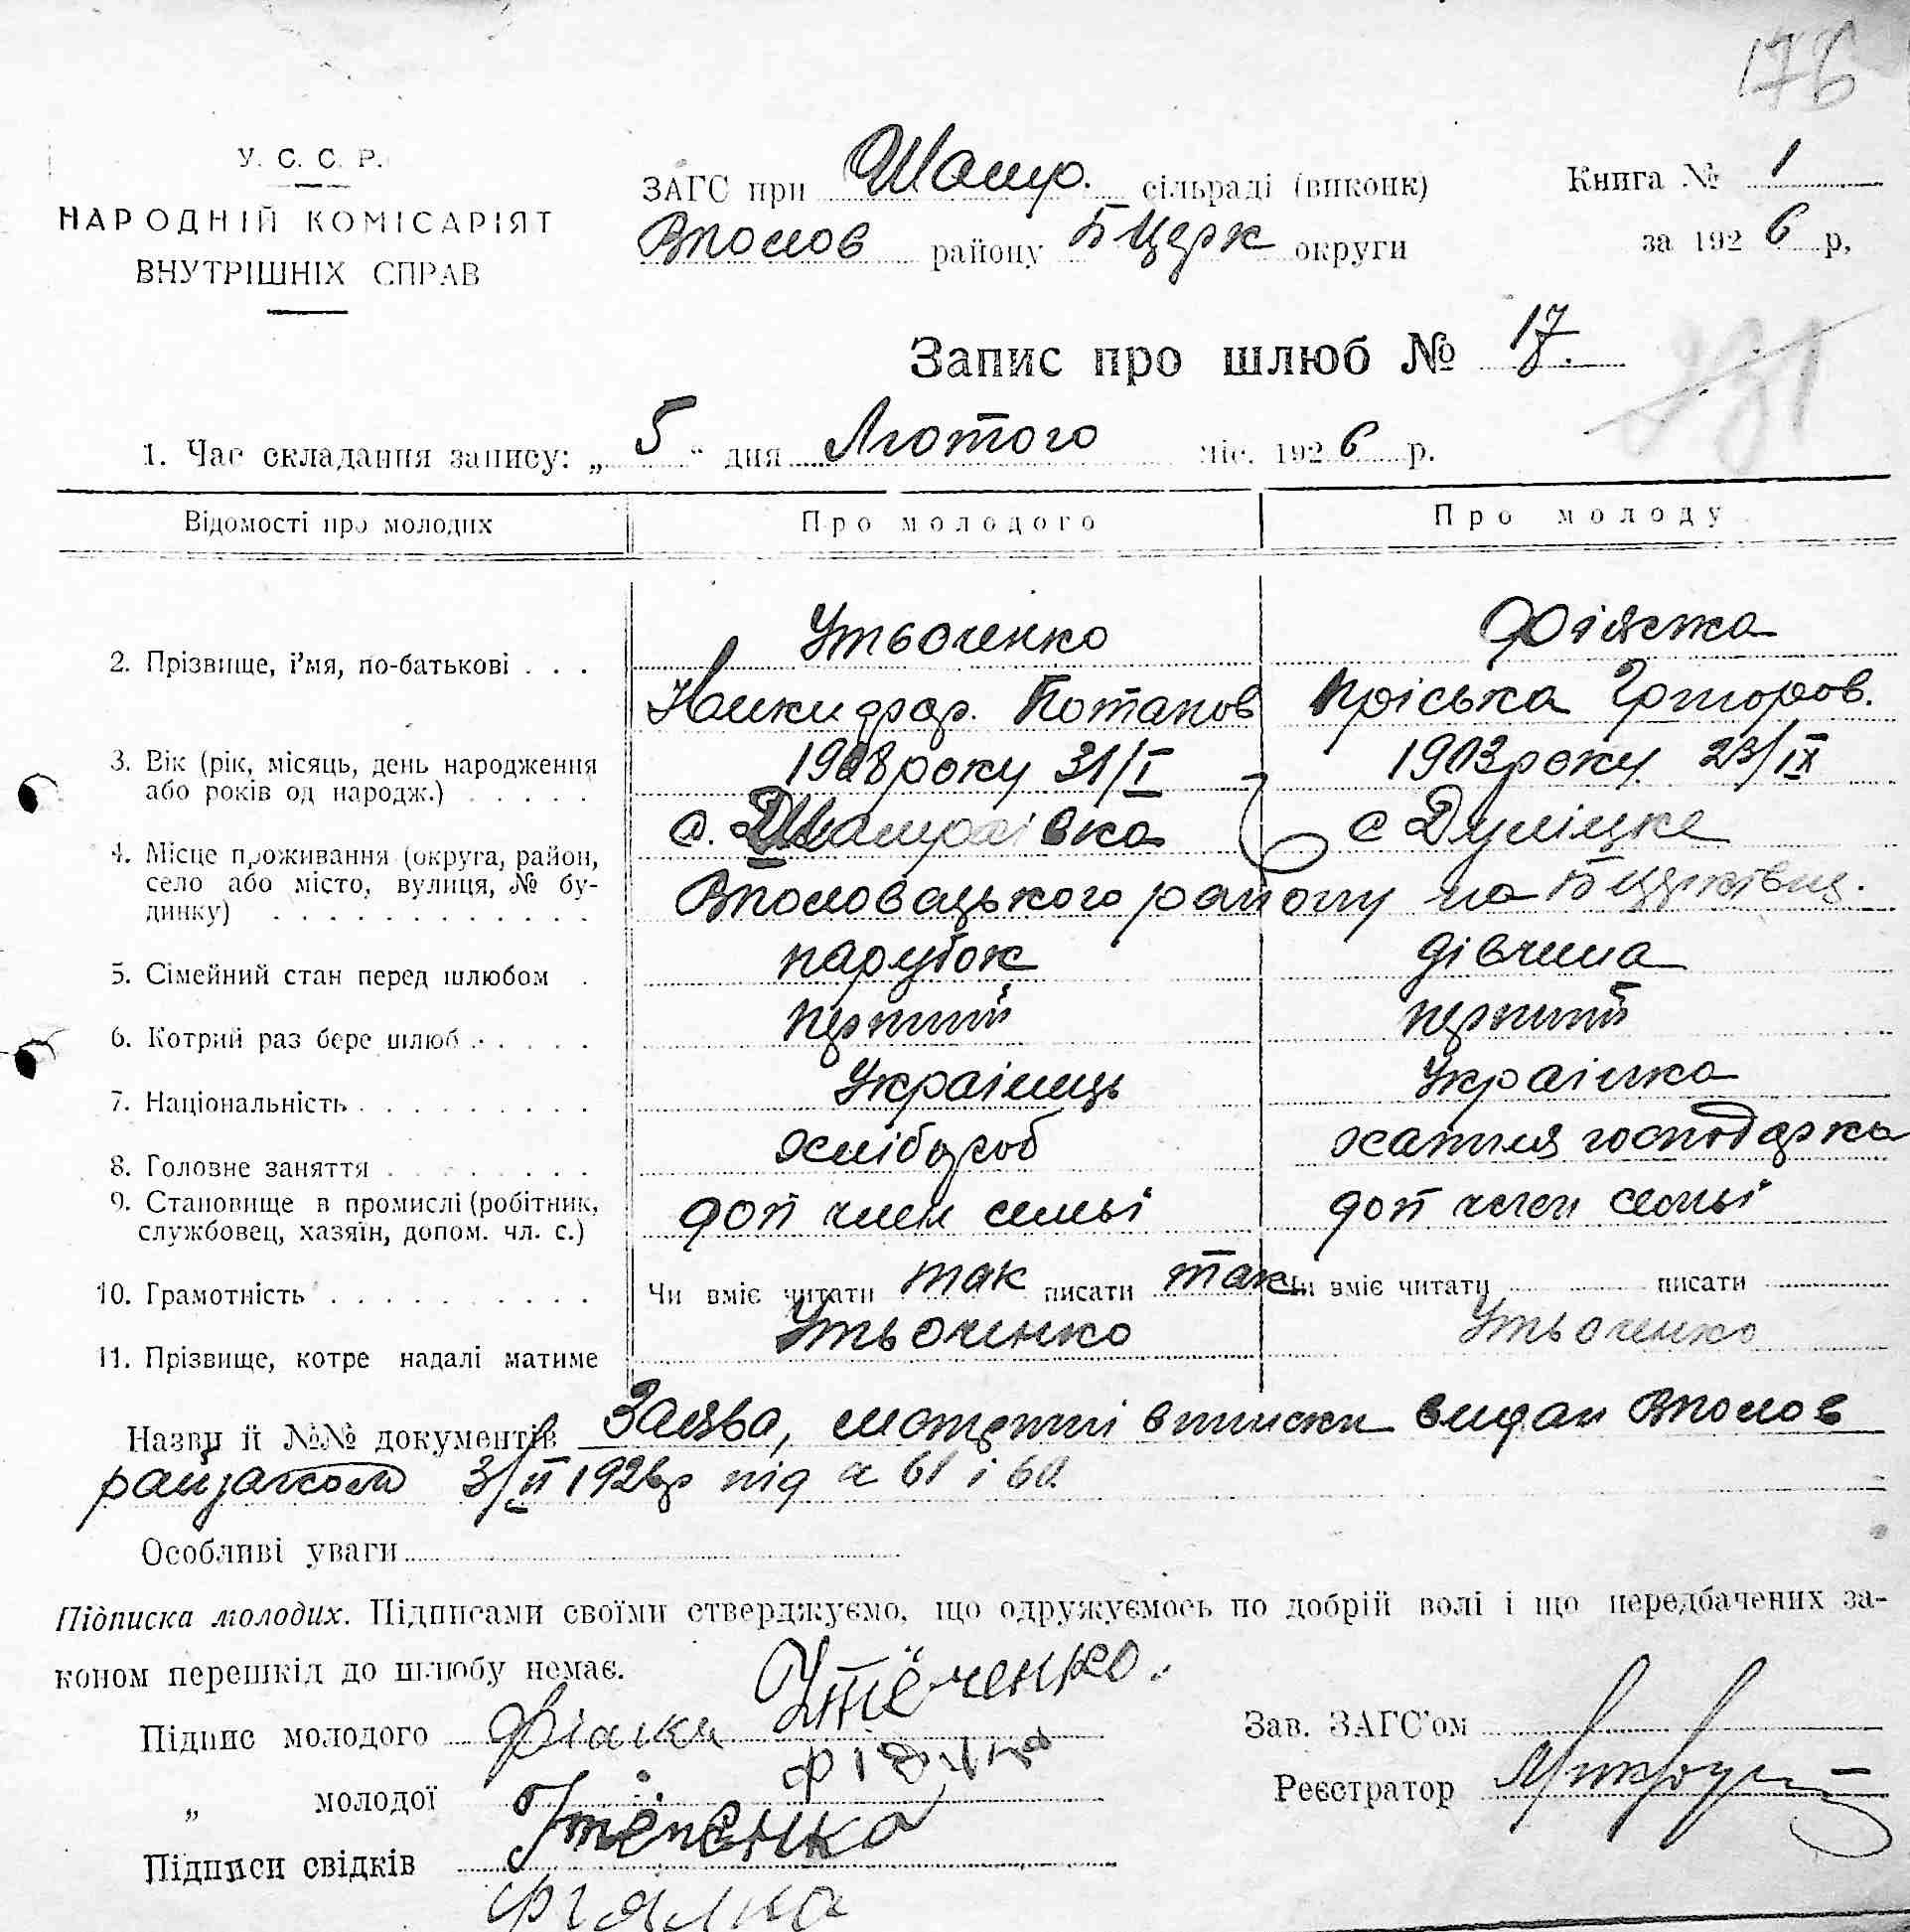 176
У. С. С. Р.
НАРОДНІЙ КОМІСАРІЯТ
ВНУТРІШНІХ СПРАВ
ЗАГС при Шамр. сільраді (виконк)
Вполов району БЦерк округи
Книга № 1
за 1926 р,
Запис про шлюб № 17.
1. Час складання запису: „5“ дня Лютого міс. 1926 р.
Відомості про молодих Про молодого Про молоду
2. Прізвище, і'мя, по-батькові . . . Утьоченко Фіялка
Никифор. Потапов Пріська Григоров.
3. Вік (рік, місяць, день народження або років од народж.) . . . . . 1908 року 31/I 1903 року 23/IX
4. Місце проживання (округа, район, село або місто, вулиця, № будинку) . . . . . . . . . . . . с. Шамраівка с Дуліцке
Вполовацького району на БЦерківщ.
5. Сімейний стан перед шлюбом . парубок дівчина
6. Котрий раз бере шлюб . . . . . перший перший
7. Національність . . . . . . . . . Українець Українка
8. Головне заняття . . . . . . . . хлібороб хатня господарка
9. Становище в промислі (робітник, службовец, хазяїн, допом. чл. с.) доп член сімьі доп член сімьі
10. Грамотність . . . . . . . . . . Чи вміє читати так писати так Чи вміє читати писати
11. Прізвище, котре надалі матиме Утьоченко Утьоченко
Назви й №№ документів Заява, виписки видан Вполов
райзагсом 3/II 1926р під № 61 і 60.
Особливі уваги
Підписка молодих. Підписами своїми стверджуємо, що одружуємось по добрій волі і що передбачених за-
коном перешкід до шлюбу немає.
Утёченко.
Підпис молодого
Фіялка
„ молодої
Підписи свідків
Фіялка
Зав. ЗАГС'ом
Реєстратор